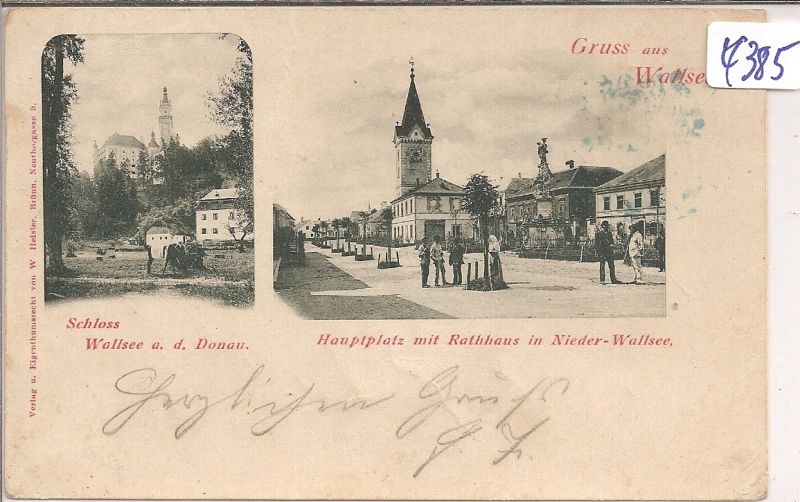 Gruss aus
Wallsee
4385
Verlag u. Eigenthumsrecht von W Heisler, Brünn, Neuthorgasse 9.
Schloss
Wallsee a. d. Donau.
Hauptplatz mit Rathhaus in Nieder-Wallsee,
Herzlichen Gruss